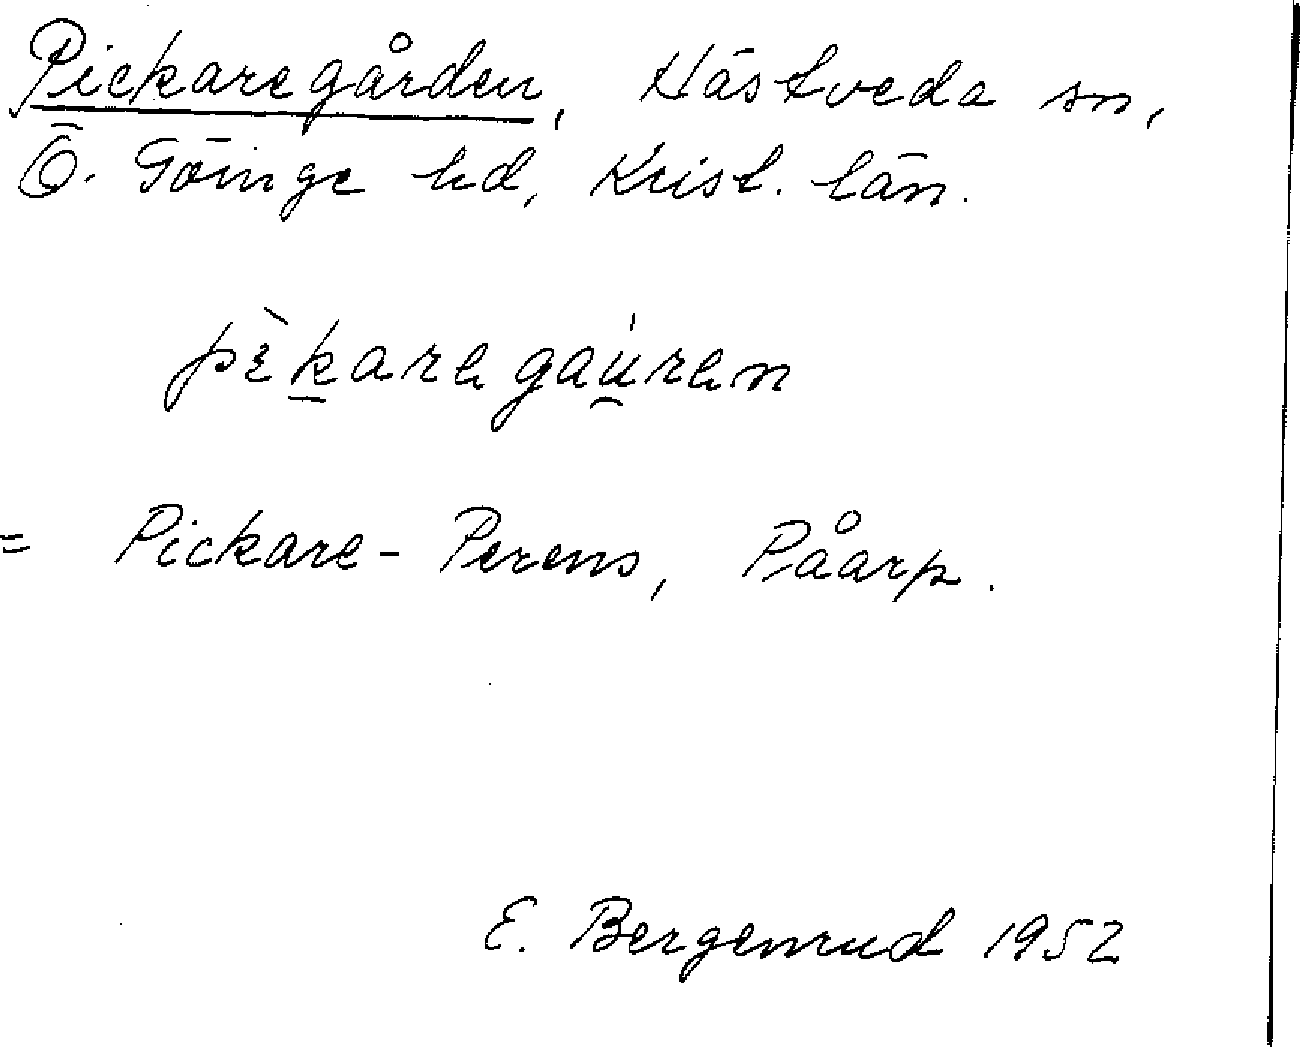 Pickaregården, Hästveda sn,
Ö. Göinge hd, Krist. län.
pɛ̀ḵaregaú̯ren
= Pickare-Perens, Påarp.
E. Bergenrud 1952